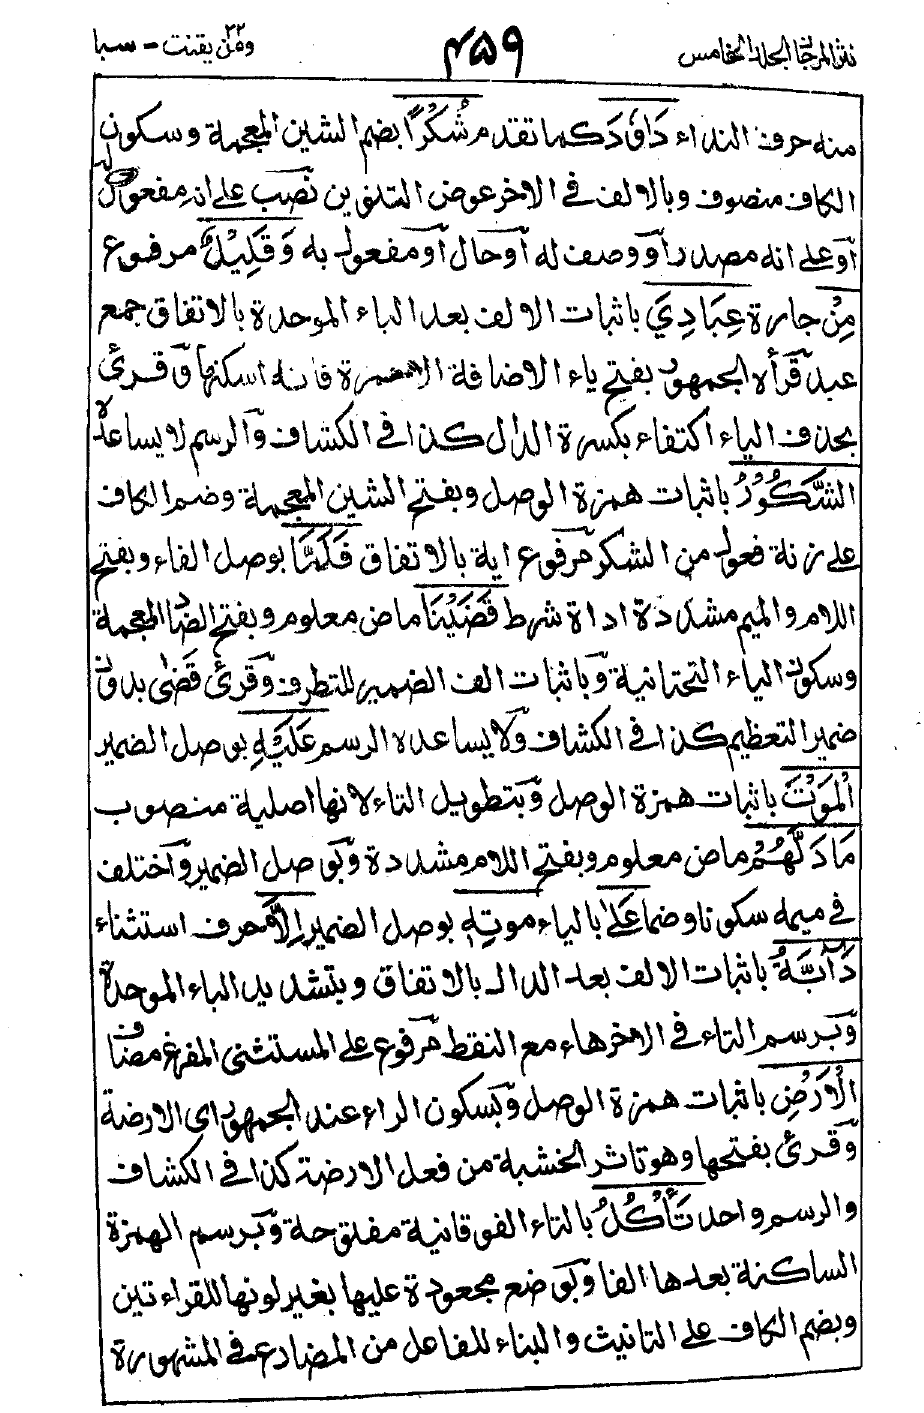 نثر المرجان المجلد الخامس
۴۵۹
ومن يقنت ۲۲ - سبا
منه حرف النداء دَاوٗدَ كما تقدم شُكْرًا بضم الشين المعجمة وسكون
الكاف منصوف وبالالف فى الاخر عوض التنوين نصب على انه مفعول له
أو على انه مصدر أو وصف له أو حال أو مفعول به وَقَلِيْلٌ مرفوع
مِنْ جارة عِبَادِيَ باثبات الالف بعد الباء الموحدة بالاتفاق جمع
عبد قرأه الجمهور بفتح ياء الاضافة الا حمزة فانه اسكنها وقرئ
بحذف الياء اكتفاء بكسرة الدال كذا فى الكشاف والرسم لا يساعده
الشَّكُوْرُ باثبات همزة الوصل وبفتح الشين المعجمة وضم الكاف
على زنة فعول من الشكر مرفوع اية بالاتفاق فَلَمَّا بوصل الفاء وبفتح
اللام والميم مشددة اداة شرط قَضَيْنَا ماض معلوم وبفتح الضاد المعجمة
وسكون الياء التحتانية وباثبات الف الضمير للتطرف وقرئ قَضٰى بدون
ضمير التعظيم كذا فى الكشاف ولا يساعده الرسم عَلَيْهِ بوصل الضمير
الْمَوْتَ باثبات همزة الوصل وبتطويل التاء لانها اصلية منصوب
مَا دَلَّهُمْ ماض معلوم وبفتح اللام مشددة وبوصل الضمير واختلف
فى ميمه سكونا وضما عَلٰى بالياء موتِهٖ بوصل الضمير اِلَّا حرف استثناء
دَآبَّةُ باثبات الالف بعد الدال بالاتفاق وبتشديد الباء الموحدة
وبرسم التاء فى الاخر هاء مع النقط مرفوع على المستثنى المفرغ مضاف
الْاَرْضِ باثبات همزة الوصل وبسكون الراء عند الجمهور اى الارضة
وقرئ بفتحها وهو تاثر الخشبة من فعل الارضة كذا فى الكشاف
والرسم واحد تَأْكُلُ بالتاء الفوقانية مفتوحة وبرسم الهمزة
الساكنة بعدها الفا وبوضع مجعودة عليها بغير لونها للقراءتين
وبضم الكاف على التانيث والبناء للفاعل من المضارع فى المشهورة